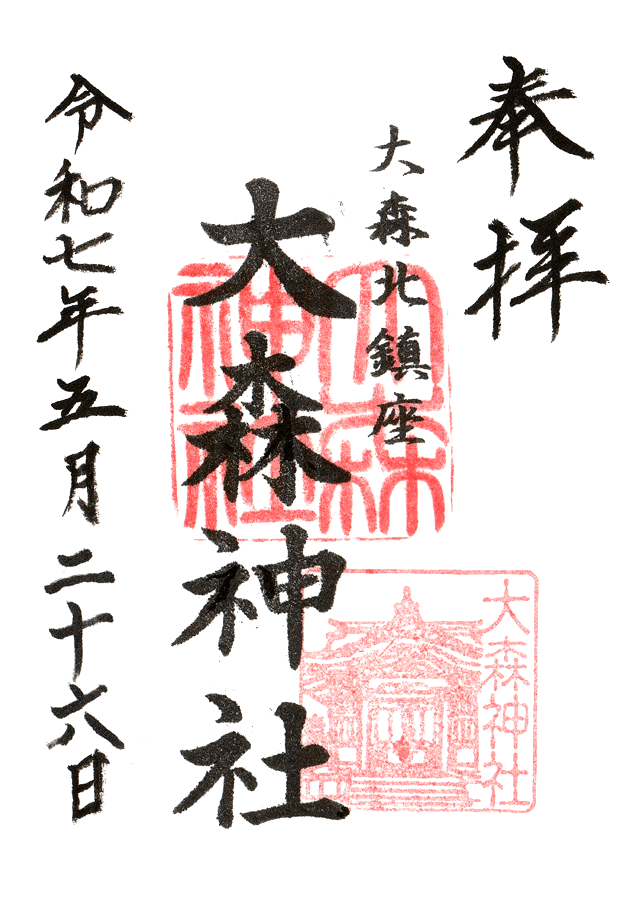 奉拝
大森北鎮座
大森神社
令和七年五月二十六日
大森神社
大森神社